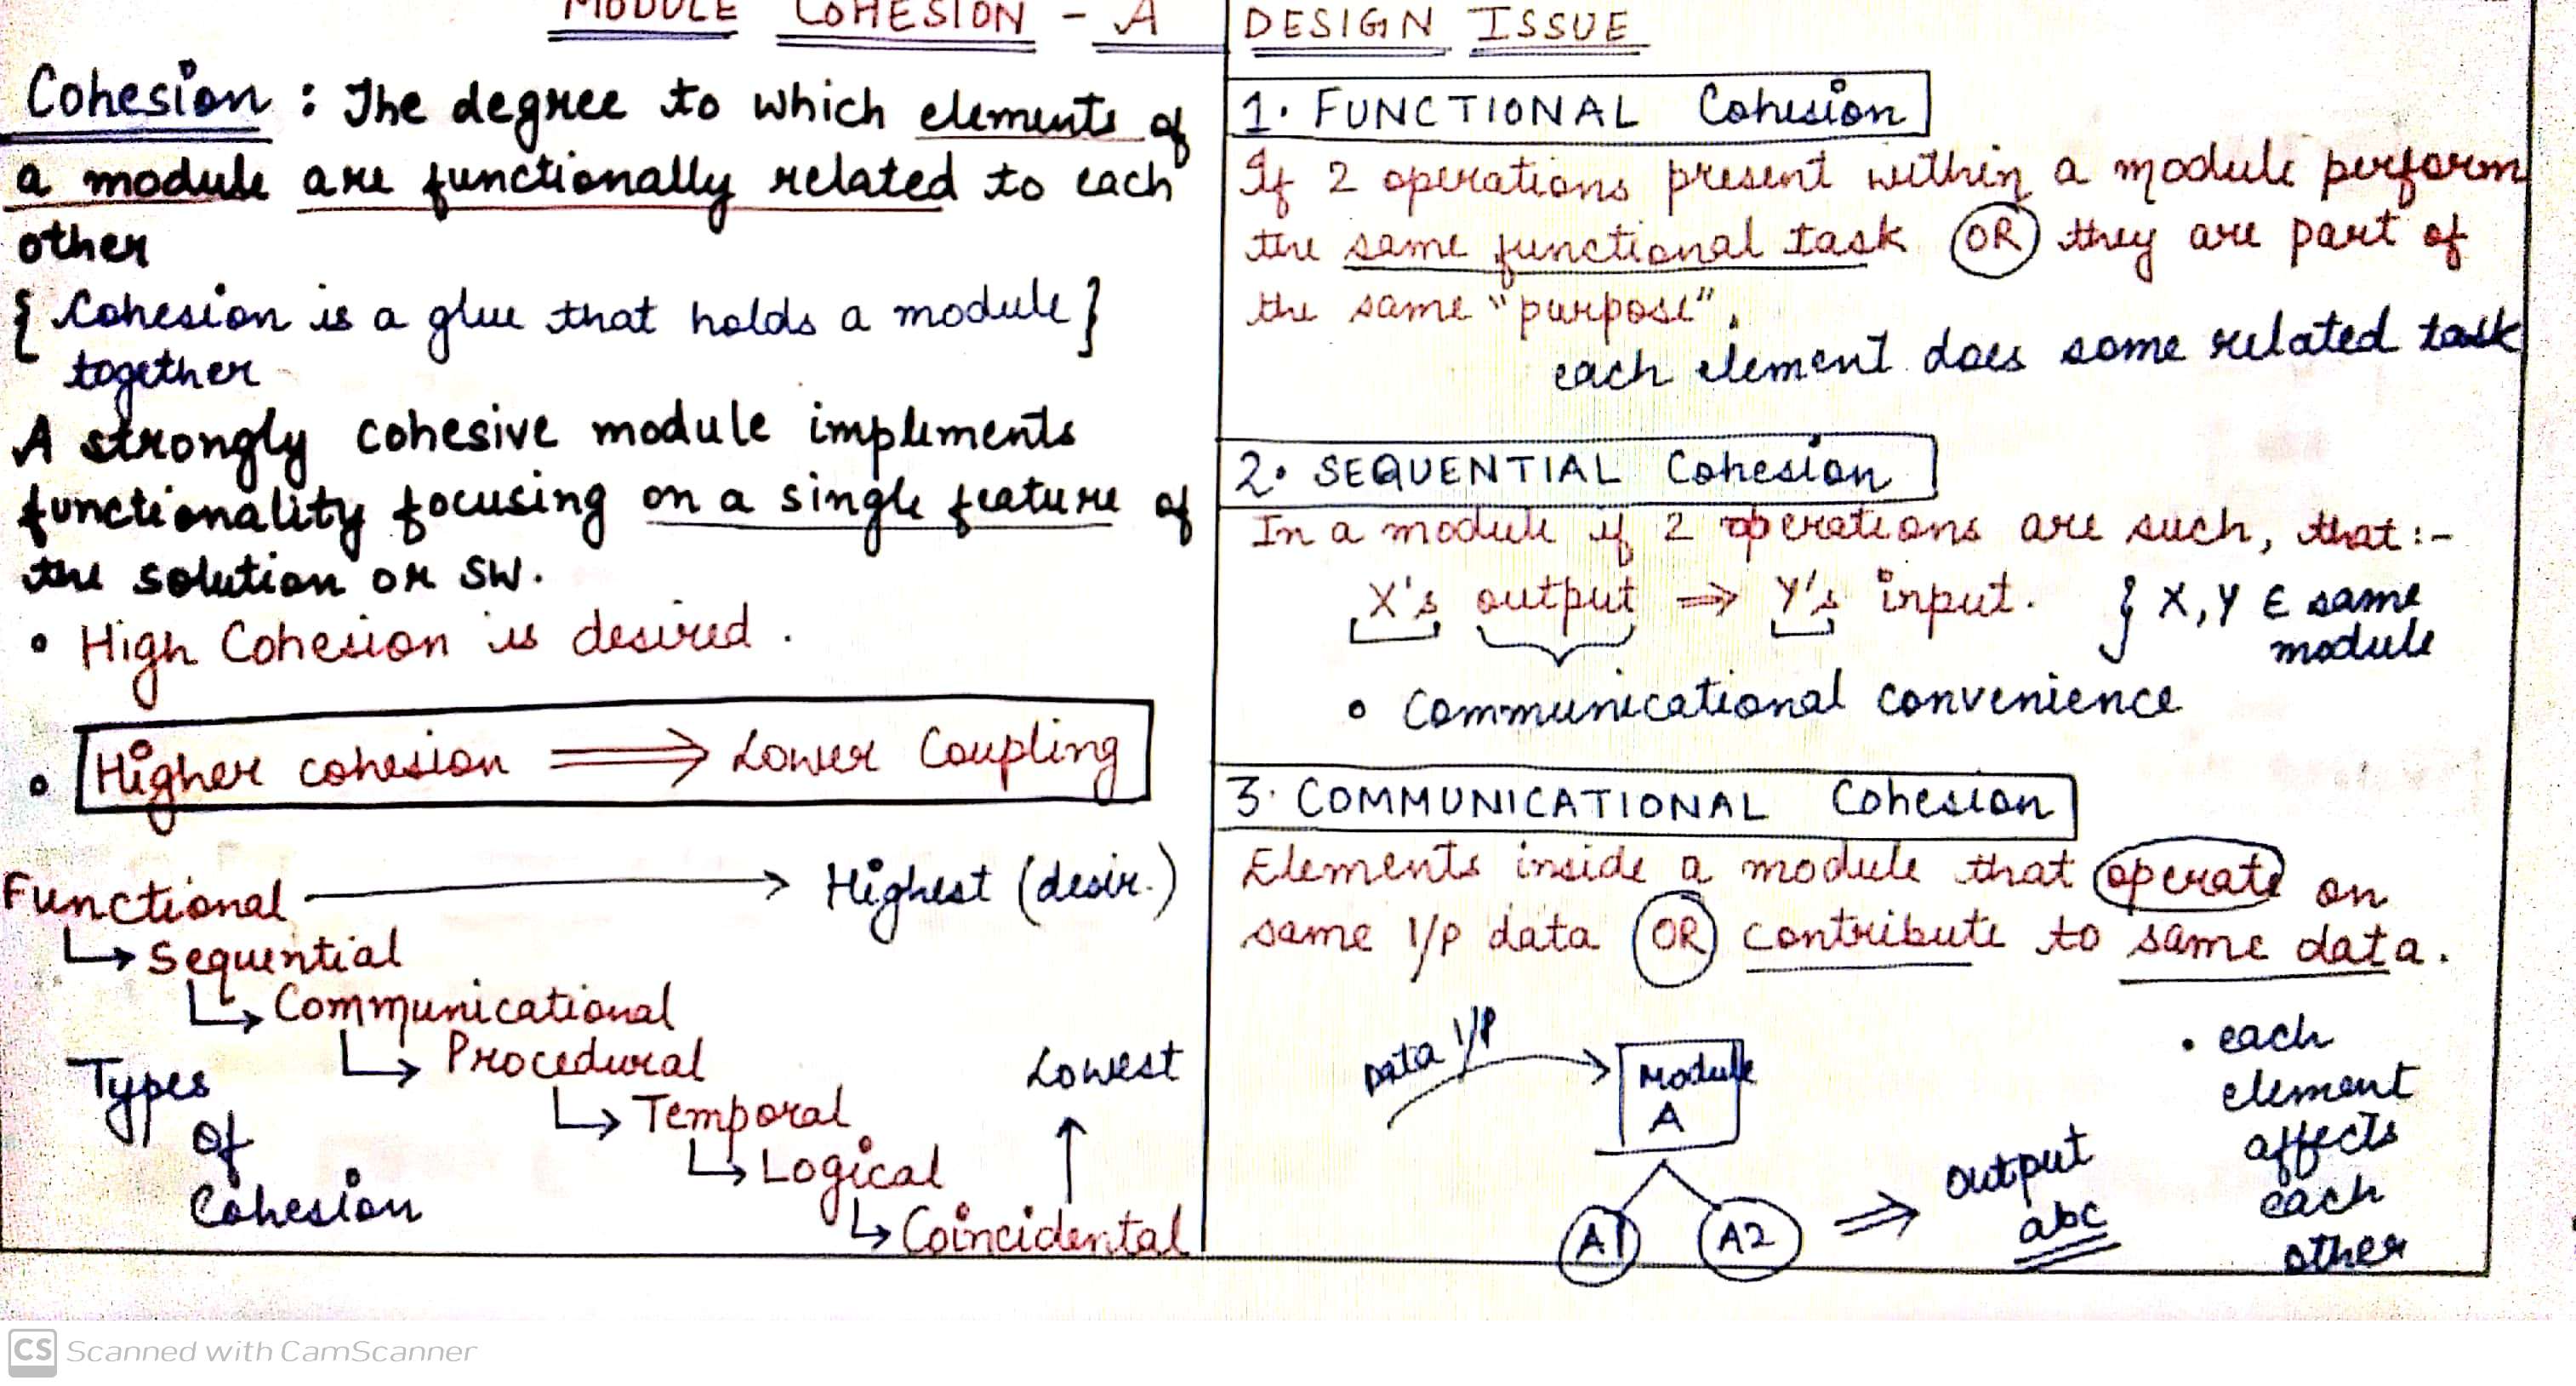 MODULE COHESION - A DESIGN ISSUE
Cohesion : The degree to which elements of
a module are functionally related to each
other
{ Cohesion is a glue that holds a module }
together
A strongly cohesive module implements
functionality focusing on a single feature of
the solution or SW.
• High Cohesion is desired .
• Higher cohesion ⟹ Lower Coupling
Functional → Highest (desir.)
↳ Sequential
↳ Communicational
↳ Procedural
↳ Temporal
↳ Logical
↳ Coincidental
Lowest
↑
Types
of
Cohesion
1. FUNCTIONAL Cohesion
If 2 operations present within a module perform
the same functional task OR they are part of
the same "purpose".
each element does some related task
2. SEQUENTIAL Cohesion
In a module if 2 operations are such, that :-
X's output ⇒ Y's input. { X, Y ∈ same
module
• Communicational convenience
3. COMMUNICATIONAL Cohesion
Elements inside a module that operate on
same I/P data OR contribute to same data.
Data I/P → Module
A
A1 A2 ⇒ output
abc
• each
element
affects
each
other
CS Scanned with CamScanner